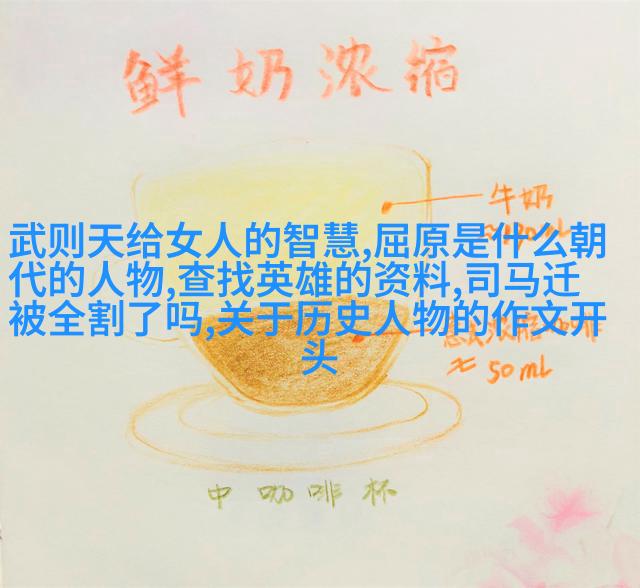 鲜奶浓缩
牛奶
武则天给女人的智慧,屈原是什么朝
代的人物,查找英雄的资料,司马迁
被全割了吗,关于历史人物的作文开
头
≈ 50mL
中咖啡杯